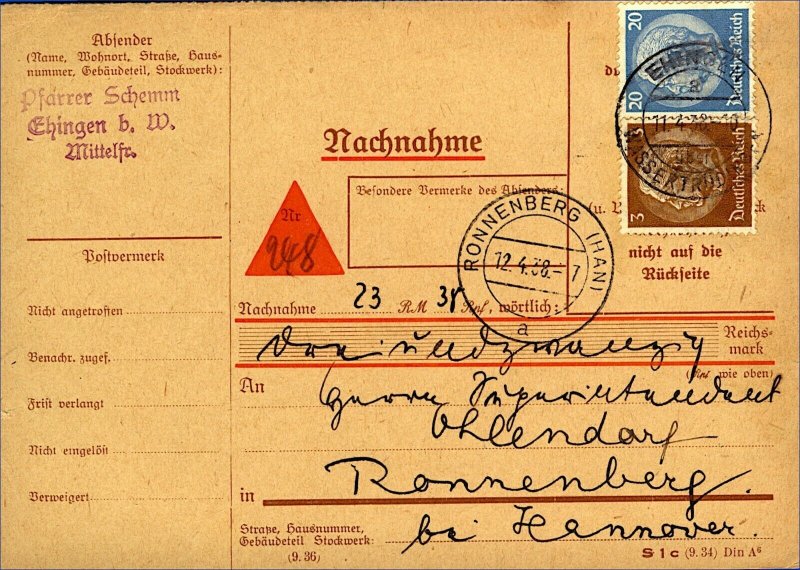 Absender
(Name, Wohnort, Straße, Haus-
nummer, Gebäudeteil, Stockwerk):
Pfarrer Schemm
Ehingen b. W.
Mittelfr.
Postvermerk
Nicht angetroffen
Benachr. zugef.
Frist verlangt
Nicht eingelöst
Verweigert
Nachnahme
Nr
248
Besondere Vermerke des Absenders:
20 20
Deutsches Reich
3
Deutsches Reich
EHINGEN
a
11.4.38
WASSERTRÜD
(u.
nicht auf die
Rückseite
RONNENBERG (HAN)
12.4.38.- 7
a
Nachnahme 23 RM 38 Rpf, wörtlich:
Dreiundzwanzig Reichs-
mark
(Rpf wie oben)
An Herrn Superintendent
Ohlendorf
in Ronnenberg.
bei Hannover.
Straße, Hausnummer,
Gebäudeteil Stockwerk:
(9.36)
S1c (9.34) Din A6